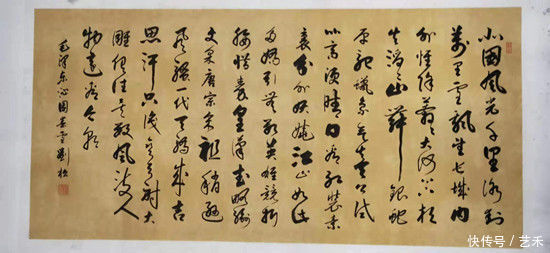 北国风光千里冰封
万里雪飘望长城内
外惟余莽莽大河上下顿
失滔滔山舞银蛇
原驰蜡象欲与天公试
比高须晴日看红装素
裹分外妖娆江山如此
多娇引无数英雄竞折
腰惜秦皇汉武略输
文采唐宗宋祖稍逊
风骚一代天骄成吉
思汗只识弯弓射大
雕俱往矣数风流人
物还看今朝
毛泽东沁园春雪劉松
快传号 / 艺禾